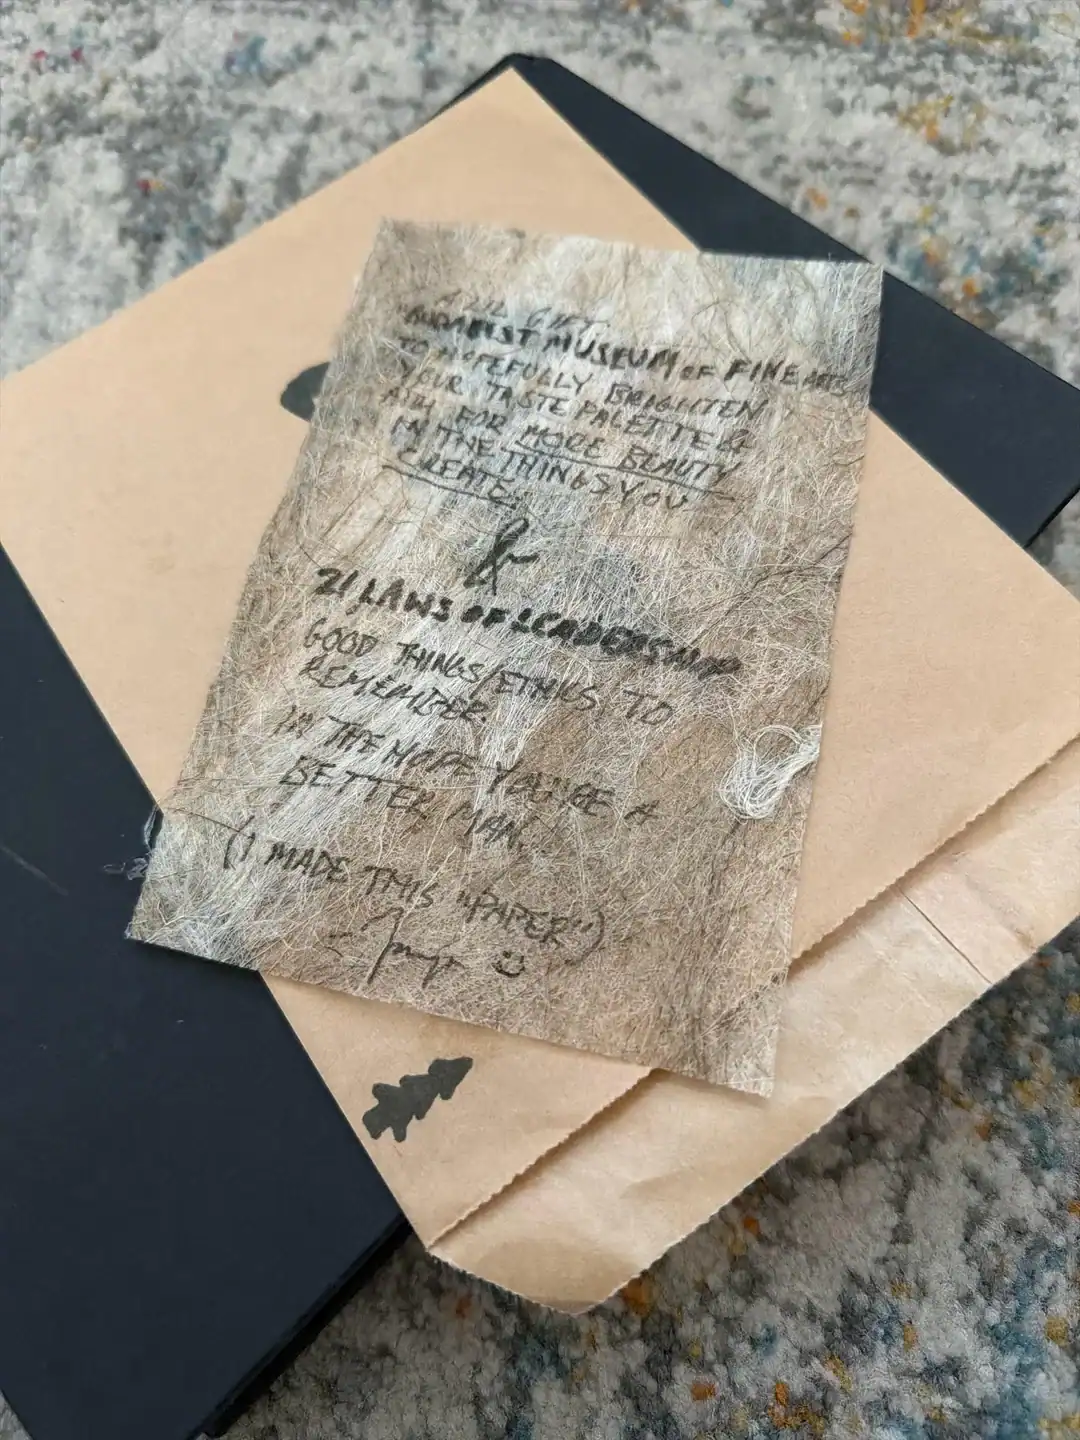 MUSEUM OF FINE ARTS
TO HOPEFULLY BRIGHTEN
YOUR TASTE PALETTE &
AIM FOR MORE BEAUTY
IN THE THINGS YOU
CREATE.
&
21 LAWS OF LEADERSHIP
GOOD THINGS/ETHICS TO
REMEMBER.
IN THE HOPE YOU'RE A
BETTER MAN.
(I MADE THIS "PAPER")